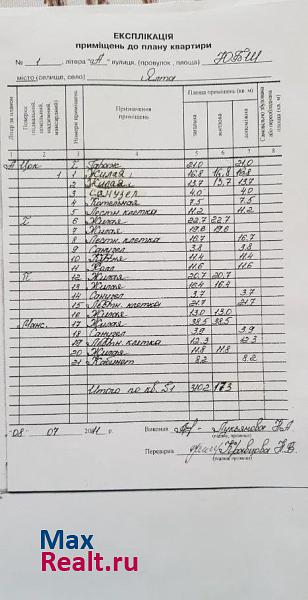 ЕКСПЛІКАЦІЯ
приміщень до плану квартири
№ 1 , літера "А" вулиця, (провулок , площа)
місто (селище, село) Ялта
Літер за планом
Номери приміщень
Призначення приміщень
Площа приміщень (кв. м)
загальна
житлова
допоміжна
1 2 3 4 5 6 7 8
А Цок I Гараж 21,0 21,0
1 1 Жилая 16,8 16,8
2 Жилая 13,7 13,7
3 Санузел 4,0 4,0
4 Котельная 7,5 7,5
5 Лестн. клетка 11,2 11,2
I 6 Жилая 22,7 22,7
7 Жилая 19,6 19,6
8 Лестн. клетка 16,7 16,7
9 Санузел 3,8 3,8
10 Кухня 11,4 11,4
11 Холл 11,6 11,6
II 12 Жилая 20,7 20,7
13 Жилая 16,4 16,4
14 Санузел 3,7 3,7
15 Лестн. клетка 21,7 21,7
16 Жилая 13,0 13,0
Манс. 17 Жилая 38,5 38,5
18 Санузел 3,9 3,9
19 Лестн. клетка 12,3 12,3
20 Жилая 11,8 11,8
21 Кабинет 8,2 8,2
Итого по кв. 1 310,2 173
08 07 2011 г. Виконав Лукьянова
(підпис, прізвище)
Перевірив Кравцова Н.В
(підпис, прізвище)
Max
Realt.ru